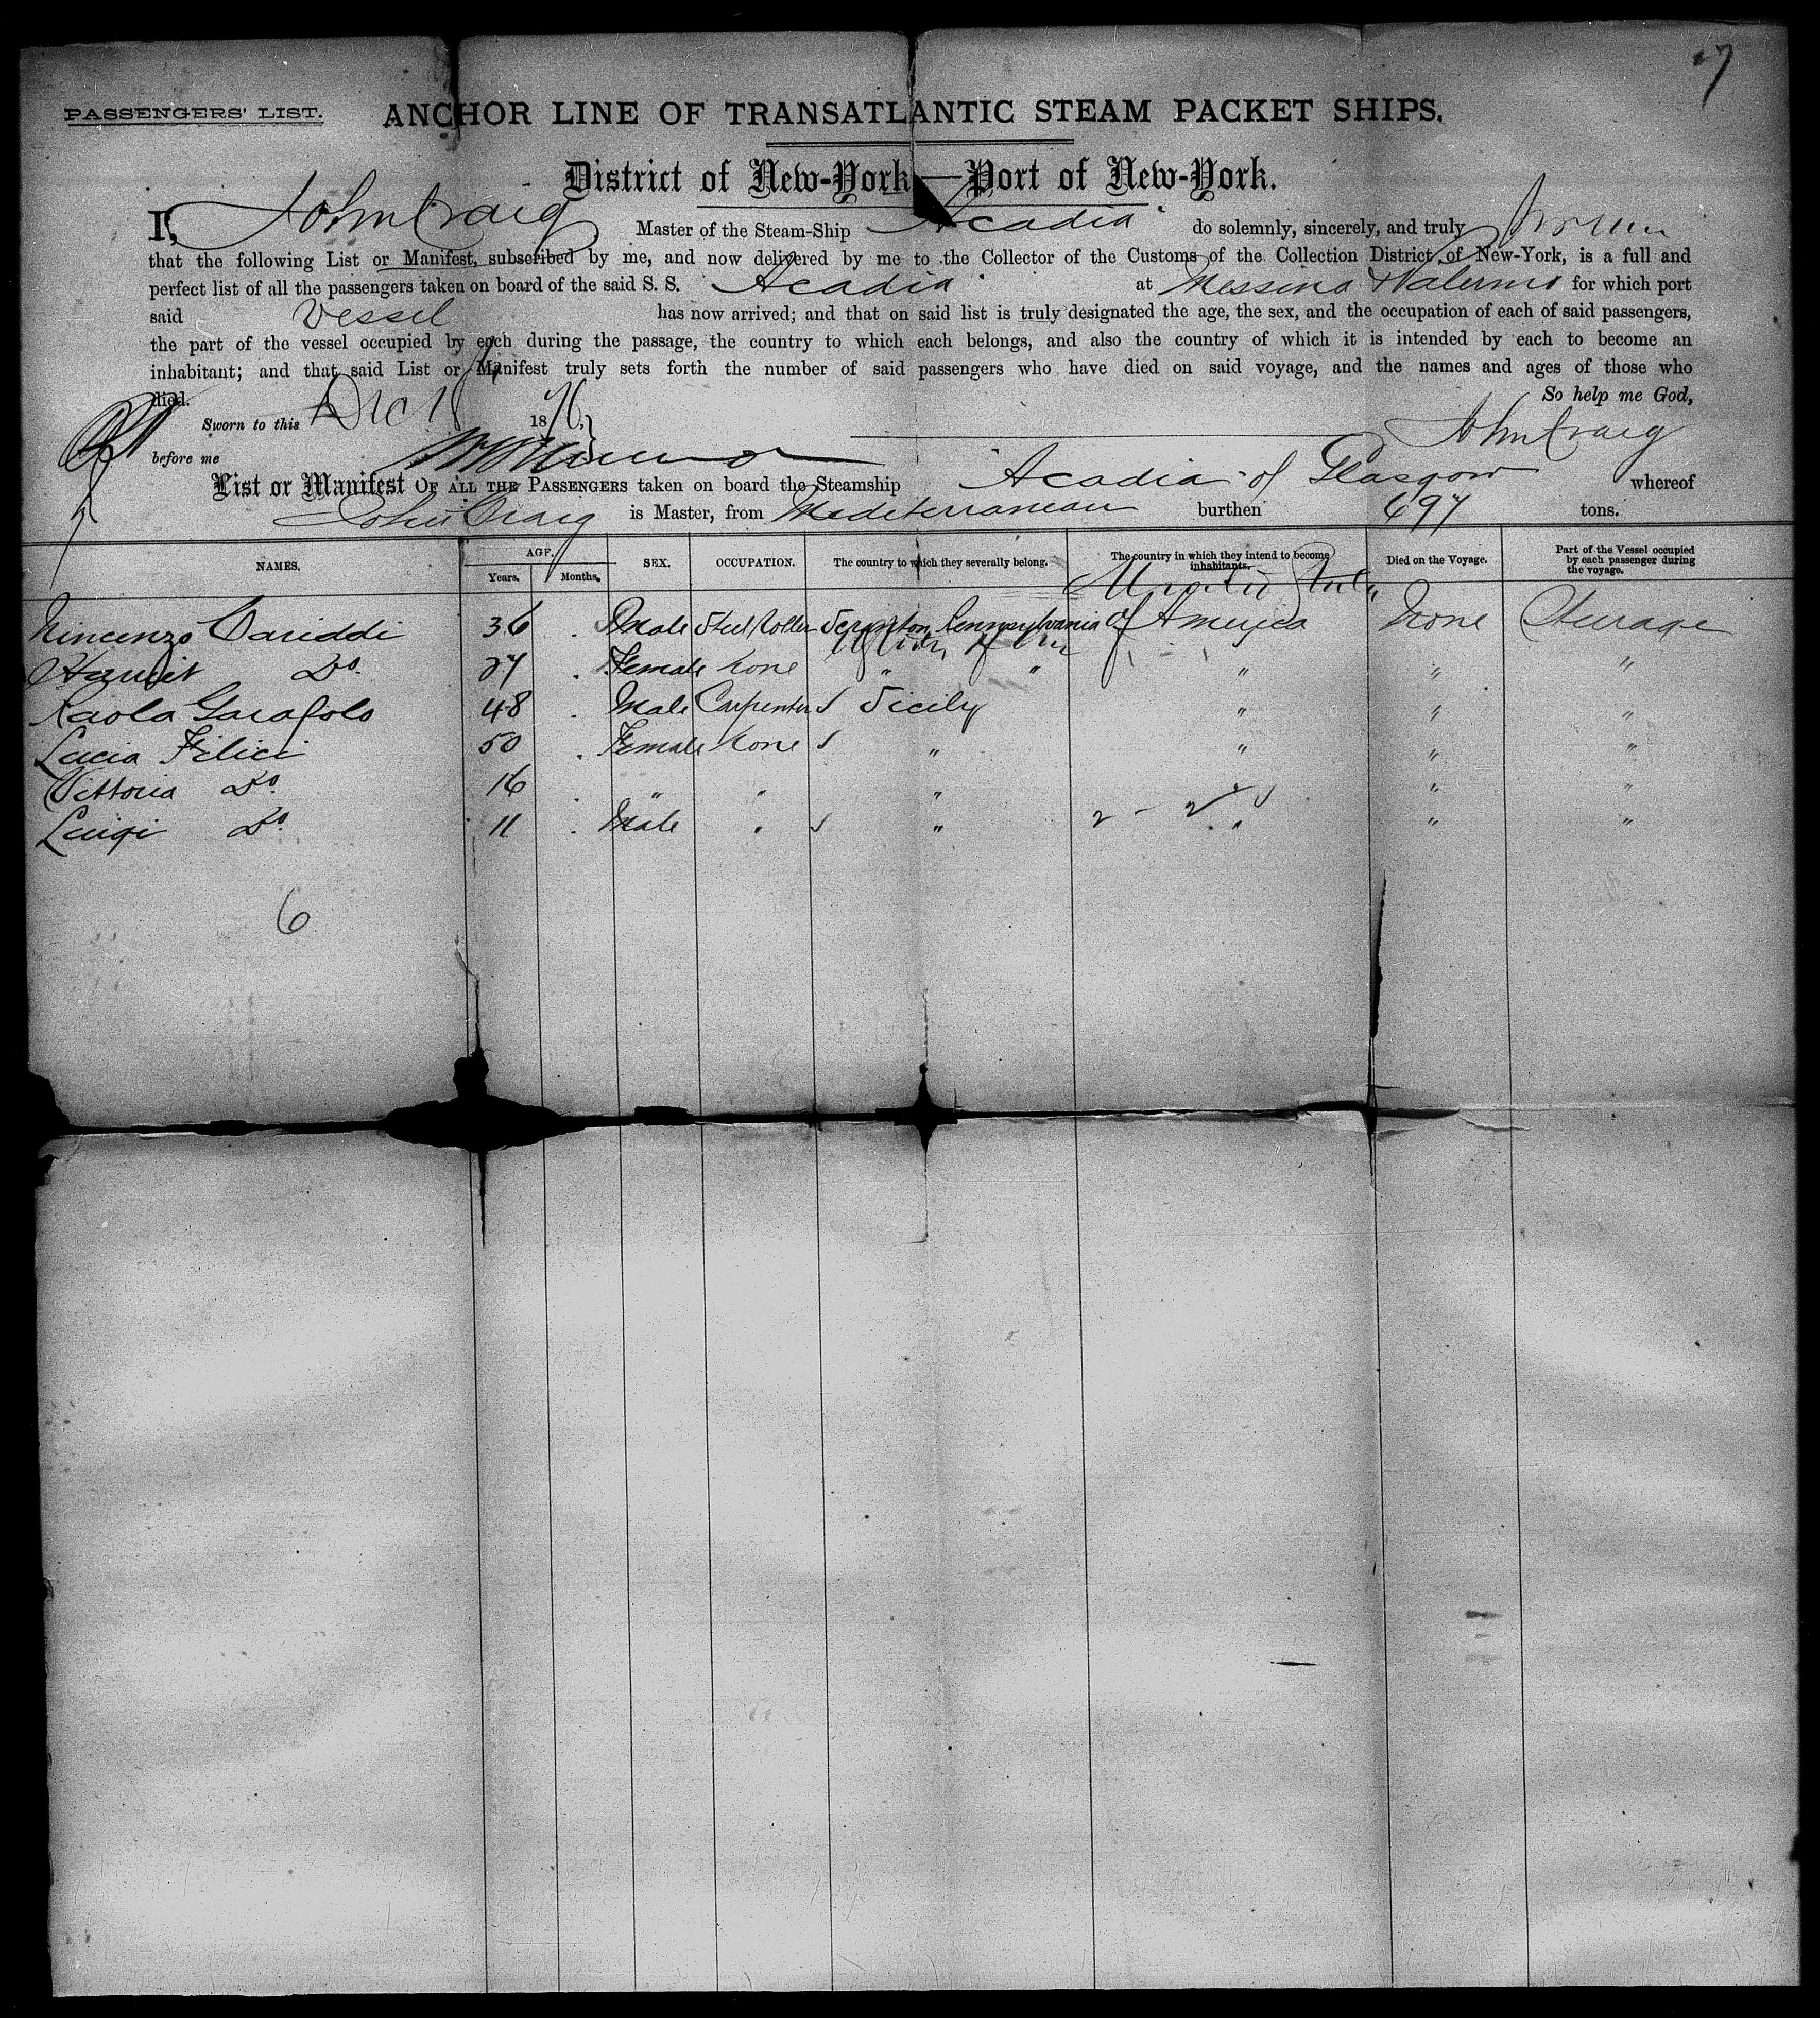 7
PASSENGERS' LIST. ANCHOR LINE OF TRANSATLANTIC STEAM PACKET SHIPS.
District of New-York—Port of New-York.
I, John Craig Master of the Steam-Ship "Acadia" do solemnly, sincerely, and truly
that the following List or Manifest, subscribed by me, and now delivered by me to the Collector of the Customs of the Collection District of New-York, is a full and
perfect list of all the passengers taken on board of the said S. S. "Acadia" at Messina & Palermo for which port
said Vessel has now arrived; and that on said list is truly designated the age, the sex, and the occupation of each of said passengers,
the part of the vessel occupied by each during the passage, the country to which each belongs, and also the country of which it is intended by each to become an
inhabitant; and that said List or Manifest truly sets forth the number of said passengers who have died on said voyage, and the names and ages of those who
died. So help me God,
Sworn to this Dec 18 1876, John Craig
before me
List or Manifest OF ALL THE PASSENGERS taken on board the Steamship "Acadia" of Glasgow whereof
John Craig is Master, from Mediterranean burthen 697 tons.
NAMES. AGE. Years. Months. SEX. OCCUPATION. The country to which they severally belong. The country in which they intend to become inhabitants. Died on the Voyage. Part of the Vessel occupied by each passenger during the voyage.
United States
Vincenzo Cariddi 36 . Male Steel Roller Scranton Pennsylvania of America None Steerage
Harriet Do. 27 . Female None " " " " "
Paola Garafolo 48 . Male Carpenter Sicily " " "
Lucia Filici 50 . Female None " " " "
Vittoria Do. 16 . " " " " " "
Luigi Do. 11 . Male " " 2 - 2 " " "
6